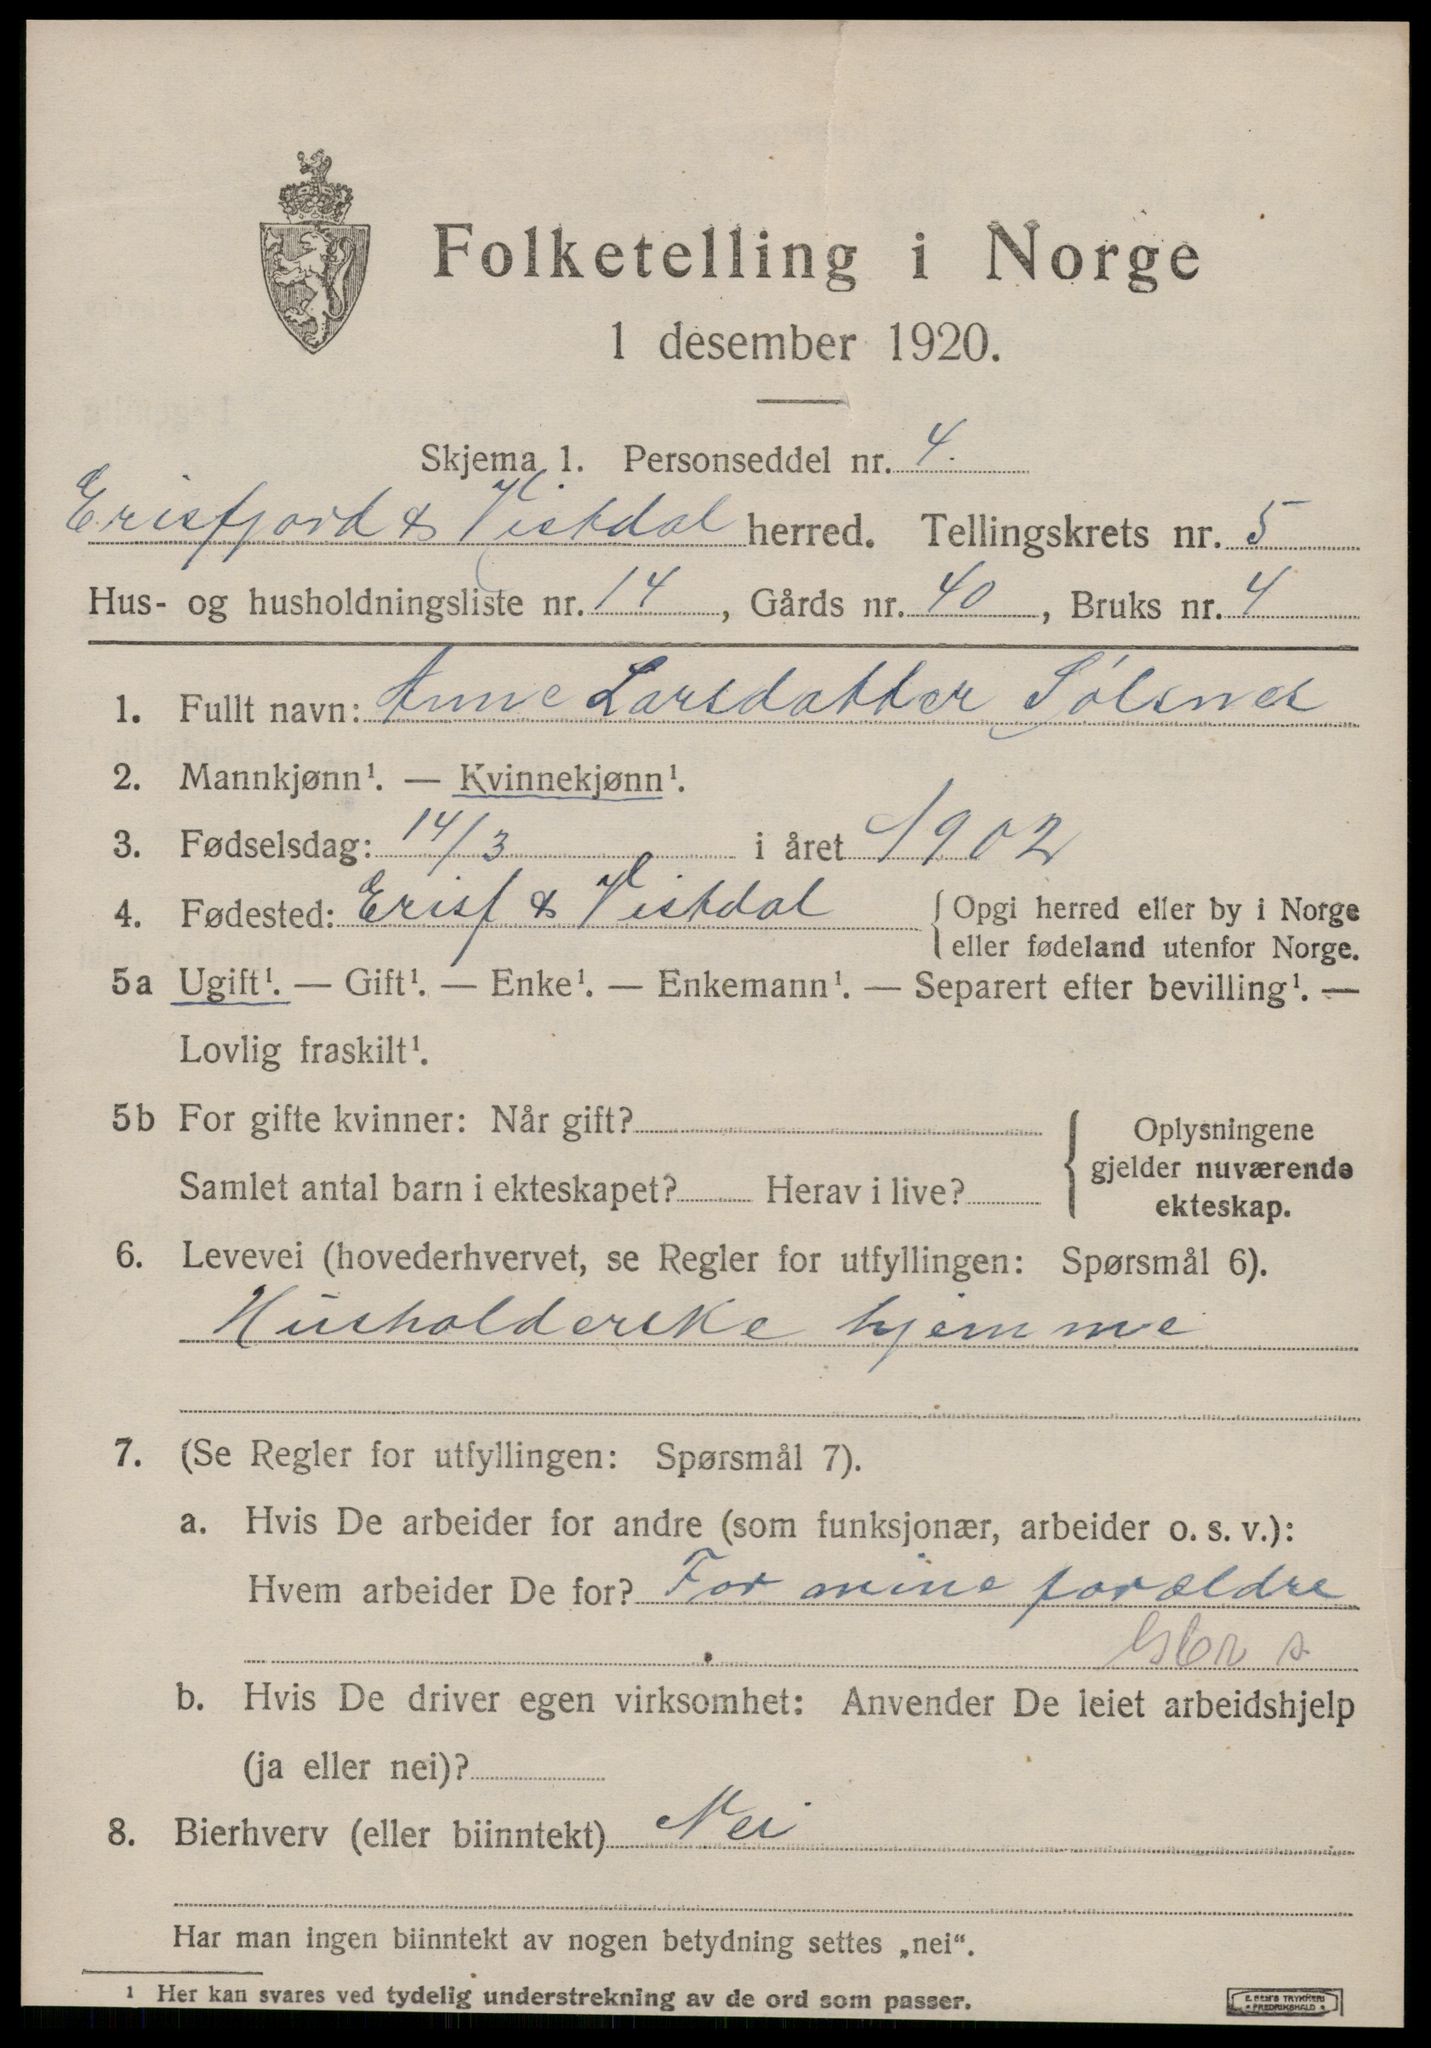 Folketelling i Norge
1 desember 1920.
Skjema 1. Personseddel nr. 4.
Erisfjord & Vistdal herred. Tellingskrets nr. 5
Hus- og husholdningsliste nr. 14, Gårds nr. 40, Bruks nr. 4
1. Fullt navn: Anne Larsdatter Sølsnes
2. Mannkjønn¹. — Kvinnekjønn¹.
3. Fødselsdag: 14/3 i året 1902
4. Fødested: Erisf & Vistdal { Opgi herred eller by i Norge
eller fødeland utenfor Norge.
5a Ugift¹. — Gift¹. — Enke¹. — Enkemann¹. — Separert efter bevilling¹. —
Lovlig fraskilt¹.
5b For gifte kvinner: Når gift?
Samlet antal barn i ekteskapet? Herav i live?
Oplysningene
gjelder nuværende
ekteskap.
6. Levevei (hovederhvervet, se Regler for utfyllingen: Spørsmål 6).
Husholderske hjemme
7. (Se Regler for utfyllingen: Spørsmål 7).
a. Hvis De arbeider for andre (som funksjonær, arbeider o. s. v.):
Hvem arbeider De for? For mine forældre
b. Hvis De driver egen virksomhet: Anvender De leiet arbeidshjelp
(ja eller nei)?
8. Bierhverv (eller biinntekt) Nei
Har man ingen biinntekt av nogen betydning settes „nei“.
¹ Her kan svares ved tydelig understrekning av de ord som passer.
TRYKKERI
FREDRIKSHALD